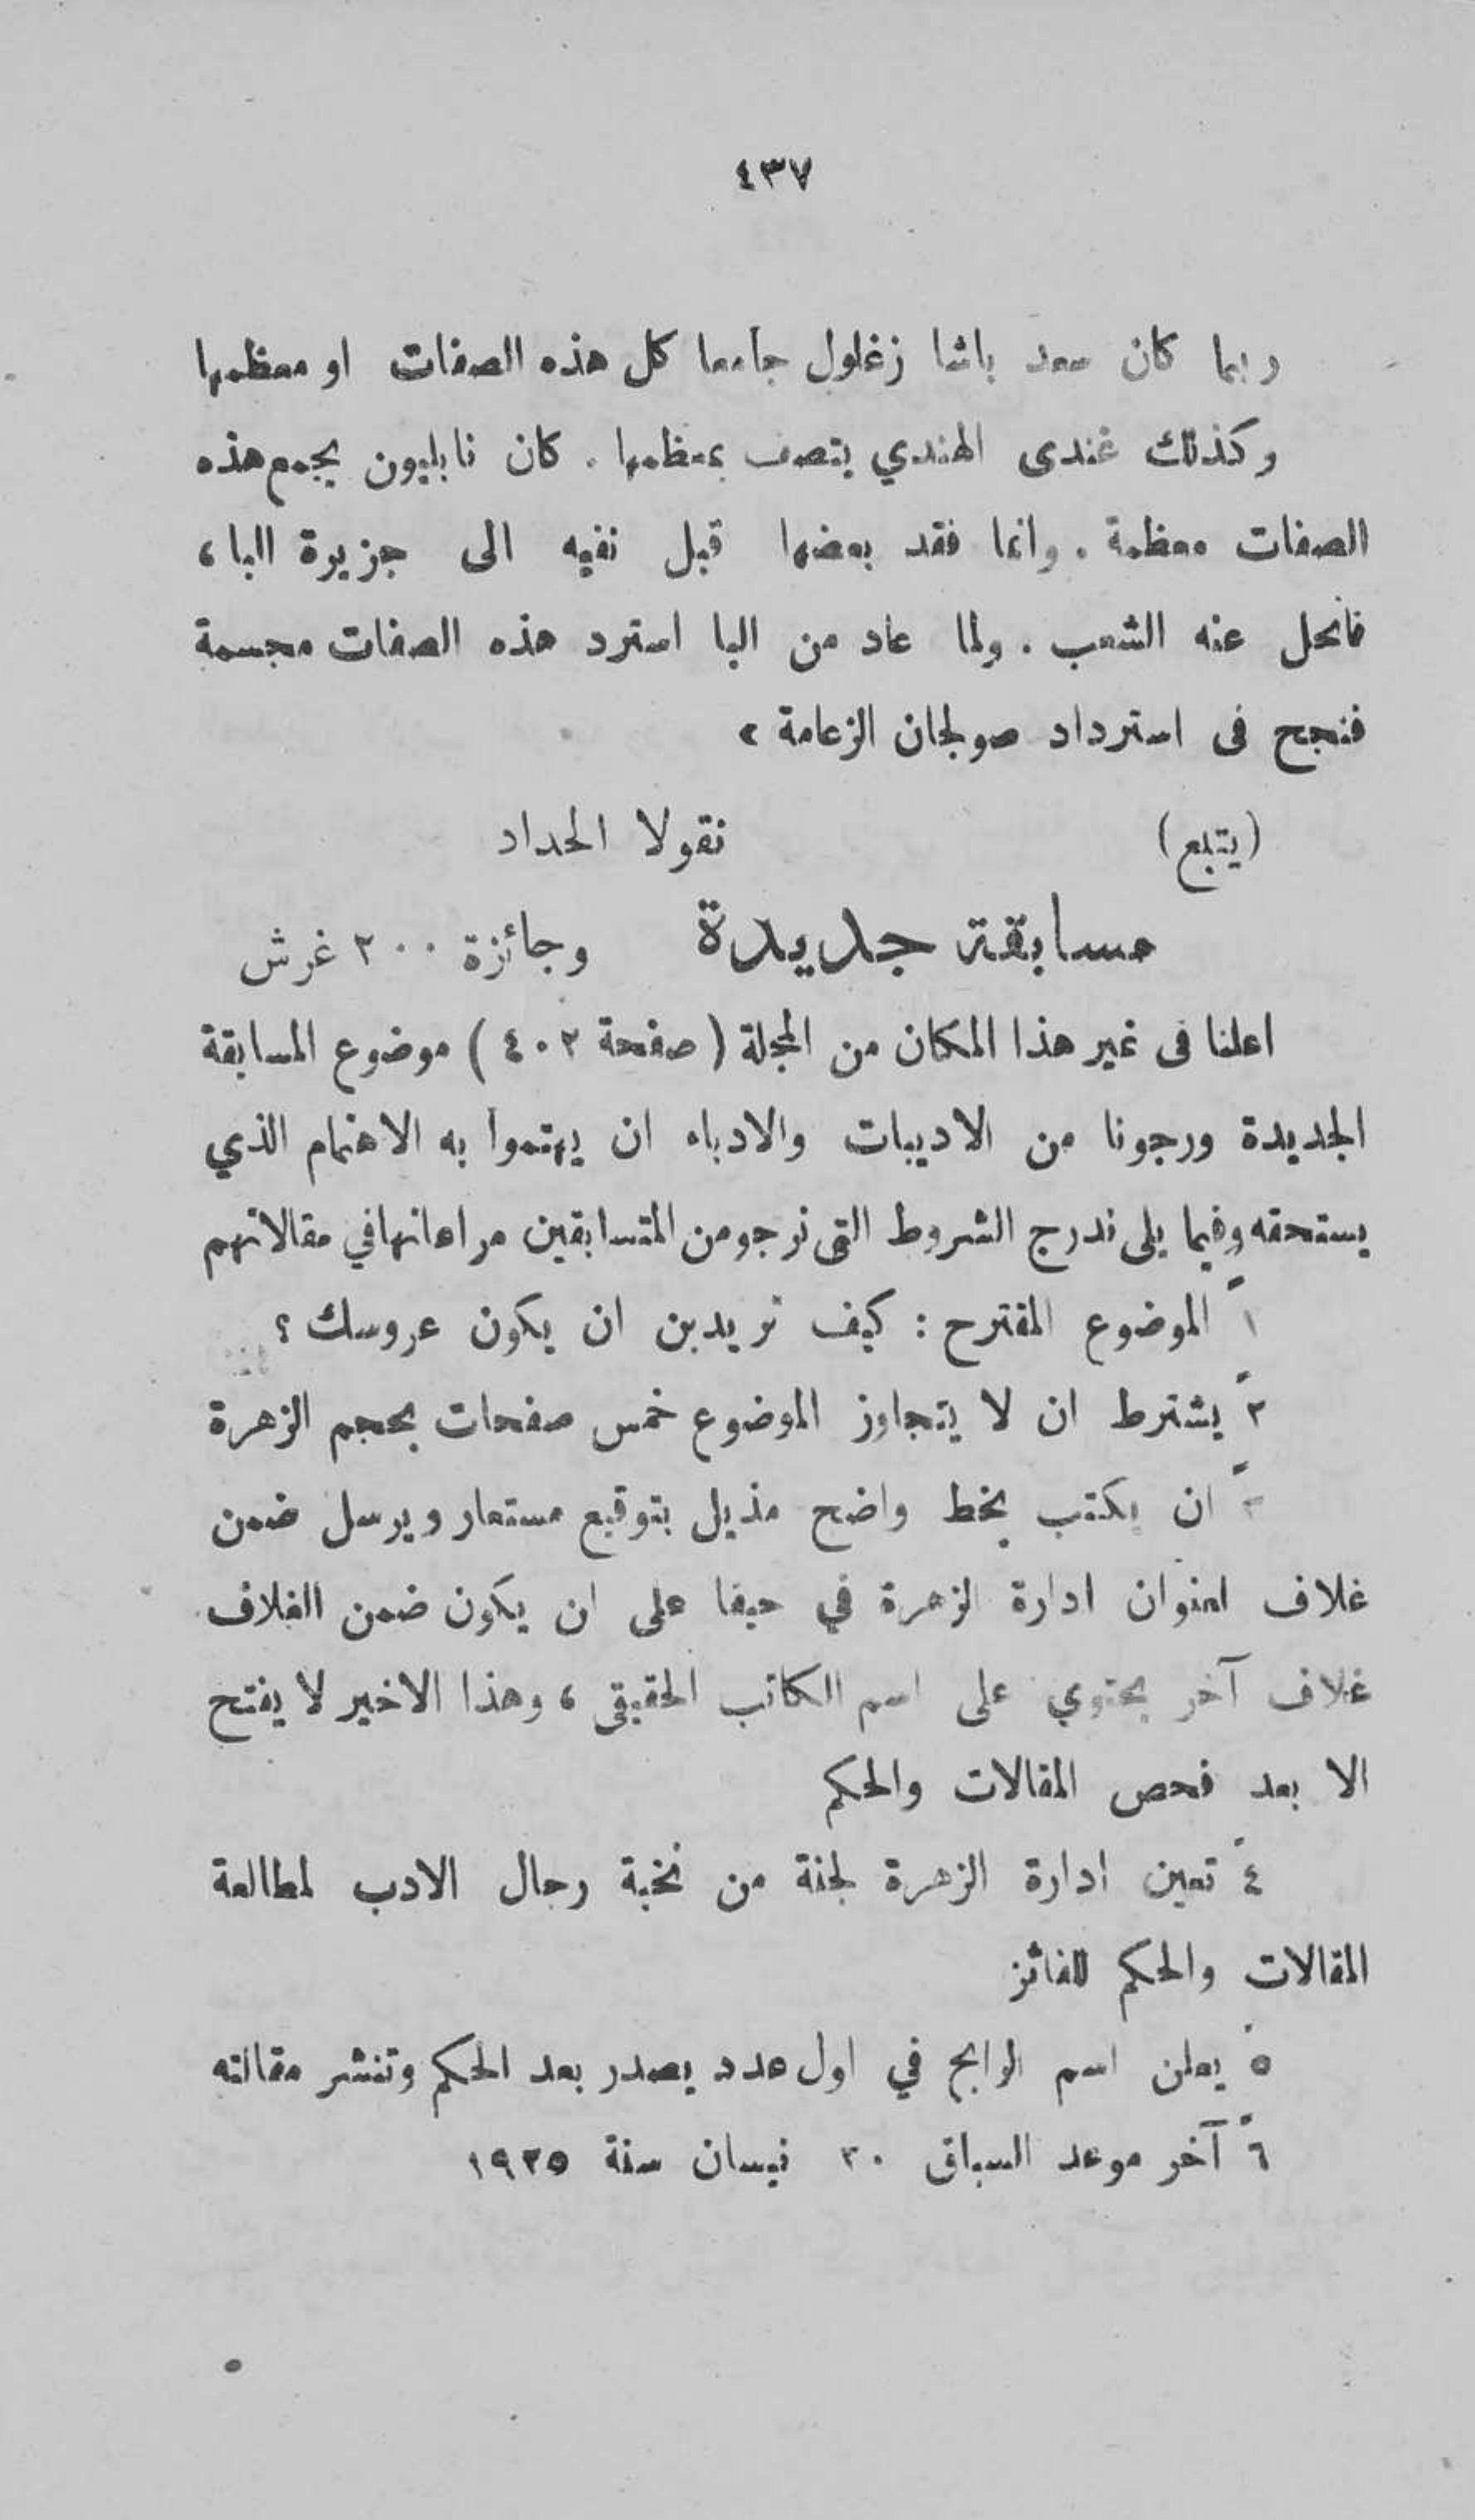 ٤٣٧
وربما كان سعد باشا زغلول جامعا كل هذه الصفات او معظمها
وكذلك غندى الهندي يتصف بمعظمها . كان نابليون يجمع هذه
الصفات معظمة . وانما فقد بعضها قبل نفيه الى جزيرة البا ،
فانحل عنه الشعب . ولما عاد من البا استرد هذه الصفات مجسمة
فنجح فى استرداد صولجان الزعامة »
(يتبع) نقولا الحداد
مسابقة جديدة وجائزة ٢٠٠ غرش
اعلنا فى غير هذا المكان من المجلة ( صفحة ٤٠٢ ) موضوع المسابقة
الجديدة ورجونا من الاديبات والادباء ان يهتموا به الاهتمام الذي
يستحقه وفيما يلى ندرج الشروط التى نرجو من المتسابقين مراعاتها في مقالاتهم
١ً الموضوع المقترح : كيف تريدين ان يكون عروسك ؟
٢ً يشترط ان لا يتجاوز الموضوع خمس صفحات بحجم الزهرة
٣ً ان يكتب بخط واضح مذيل بتوقيع مستعار ويرسل ضمن
غلاف لعنوان ادارة الزهرة في حيفا على ان يكون ضمن الغلاف
غلاف آخر يحتوي على اسم الكاتب الحقيقى ، وهذا الاخير لا يفتح
الا بعد فحص المقالات والحكم
٤ً تعين ادارة الزهرة لجنة من نخبة رجال الادب لمطالعة
المقالات والحكم للفائز
٥ً يعلن اسم الرابح في اول عدد يصدر بعد الحكم وتنشر مقالته
٦ً آخر موعد السباق ٣٠ نيسان سنة ١٩٢٥